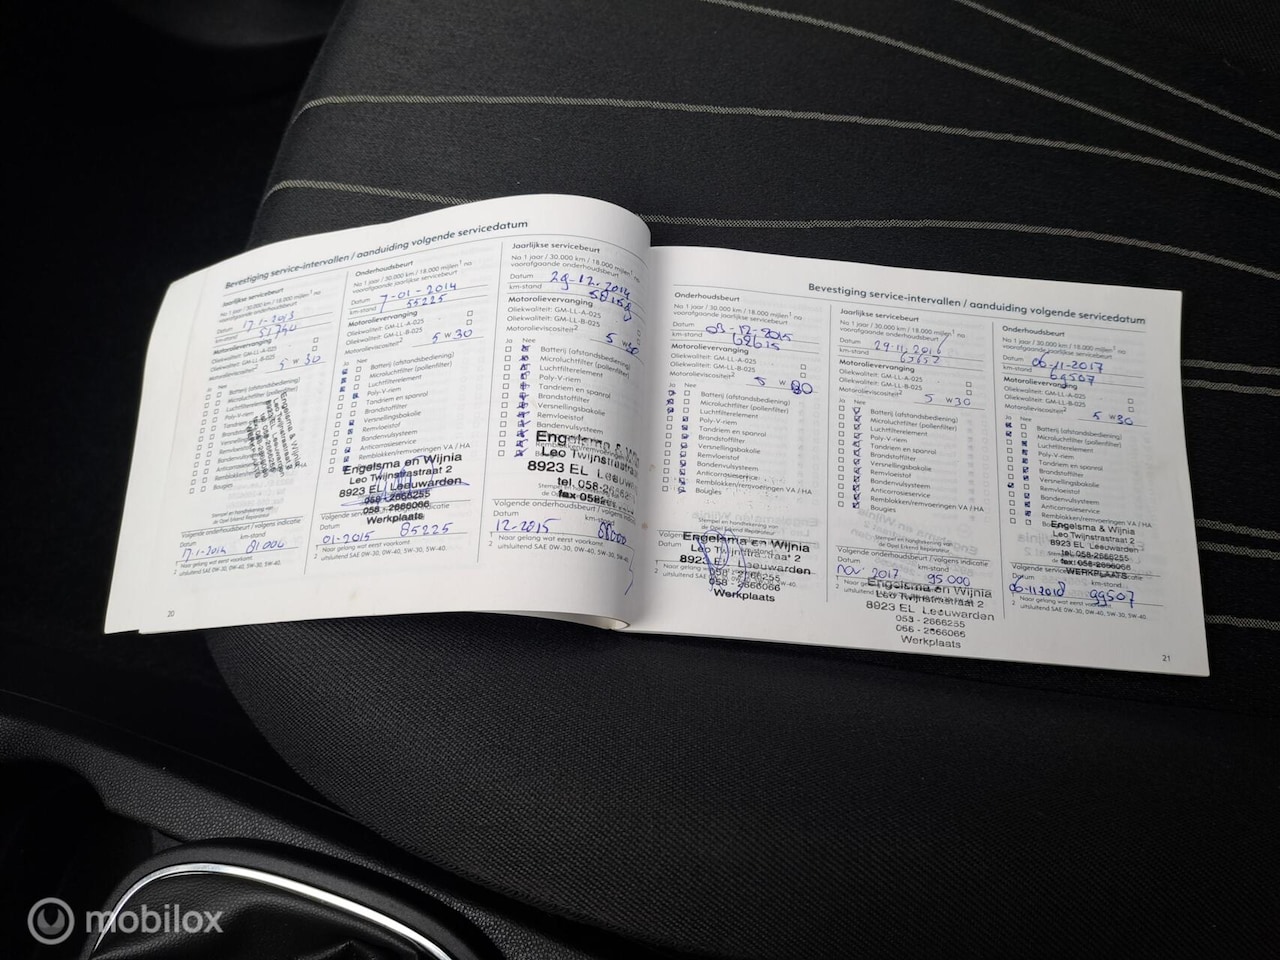 Bevestiging service-intervallen / aanduiding volgende servicedatum
Jaarlijkse servicebeurt
No 1 jaar / 30.000 km / 18.000 mijlen¹ na
voorafgaande onderhoudsbeurt
Datum 17-1-2013
km-stand
Motorolieverversing
Oliekwaliteit: GM-LL-A-025
GM-LL-B-025
Motorolieviscositeit² 5 W 30
Ja Nee
Batterij (afstandsbediening)
Microluchtfilter (pollenfilter)
Luchtfilterelement
Poly-V-riem
Tandriem en spanrol
Brandstoffilter
Versnellingsbakolie
Remvloeistof
Bandenvulsysteem
Anticorrosieservice
Remblokken/remvoeringen VA / HA
Bougies
Engelsma & Wijnia
Stempel en handtekening van
de Opel Erkend Reparateur
Volgende onderhoudsbeurt / volgens indicatie
Datum km-stand
17-1-2014 81000
¹ Naar gelang wat eerst voorkomt
² uitsluitend SAE 0W-30, 0W-40, 5W-30, 5W-40.
20
Onderhoudsbeurt
No 1 jaar / 30.000 km / 18.000 mijlen¹ na
voorafgaande jaarlijkse servicebeurt
Datum 7-01-2014
km-stand 55225
Motorolieverversing
Oliekwaliteit: GM-LL-A-025
GM-LL-B-025
Motorolieviscositeit² 5 W 30
Ja Nee
Batterij (afstandsbediening)
Microluchtfilter (pollenfilter)
Luchtfilterelement
Poly-V-riem
Tandriem en spanrol
Brandstoffilter
Versnellingsbakolie
Remvloeistof
Bandenvulsysteem
Anticorrosieservice
Remblokken/remvoeringen VA / HA
Engelsma en Wijnia
Leo Twijnstrastraat 2
8923 EL Leeuwarden
058 - 2666255
058 - 2666066
Werkplaats
Datum km-stand
01-2015 85225
¹ Naar gelang wat eerst voorkomt
² uitsluitend SAE 0W-30, 0W-40, 5W-30, 5W-40.
Jaarlijkse servicebeurt
No 1 jaar / 30.000 km / 18.000 mijlen¹ na
voorafgaande onderhoudsbeurt
Datum 29-12-2014
km-stand
Motorolieverversing
Oliekwaliteit: GM-LL-A-025
GM-LL-B-025
Motorolieviscositeit² 5 W
Ja Nee
Batterij (afstandsbediening)
Microluchtfilter (pollenfilter)
Luchtfilterelement
Poly-V-riem
Tandriem en spanrol
Brandstoffilter
Versnellingsbakolie
Remvloeistof
Bandenvulsysteem
Engelsma &
Leo Twijnstrastraat
8923 EL
tel. 058-
fax 058
Volgende onderhoudsbeurt / volgens indicatie
Datum km-stand
12-2015 88000
¹ Naar gelang wat eerst voorkomt
² uitsluitend SAE 0W-30, 0W-40, 5W-30, 5W-40.
Bevestiging service-intervallen / aanduiding volgende servicedatum
Onderhoudsbeurt
No 1 jaar / 30.000 km / 18.000 mijlen¹ na
voorafgaande jaarlijkse servicebeurt
Datum 03-12-2015
km-stand 62615
Motorolieverversing
Oliekwaliteit: GM-LL-A-025
GM-LL-B-025
Motorolieviscositeit² 5 W 30
Ja Nee
Batterij (afstandsbediening)
Microluchtfilter (pollenfilter)
Luchtfilterelement
Poly-V-riem
Tandriem en spanrol
Brandstoffilter
Versnellingsbakolie
Remvloeistof
Bandenvulsysteem
Anticorrosieservice
Remblokken/remvoeringen VA / HA
Bougies
Stempel en handtekening van
de Opel Erkend Reparateur
Engelsma en Wijnia
Leo Twijnstrastraat 2
8923 EL Leeuwarden
058 - 2666255
058 - 2666066
Werkplaats
Jaarlijkse servicebeurt
No 1 jaar / 30.000 km / 18.000 mijlen¹ na
voorafgaande onderhoudsbeurt
Datum 29-11-2016
km-stand 63657
Motorolieverversing
Oliekwaliteit: GM-LL-A-025
GM-LL-B-025
Motorolieviscositeit² 5 W 30
Ja Nee
Batterij (afstandsbediening)
Microluchtfilter (pollenfilter)
Luchtfilterelement
Poly-V-riem
Tandriem en spanrol
Brandstoffilter
Versnellingsbakolie
Remvloeistof
Bandenvulsysteem
Anticorrosieservice
Remblokken/remvoeringen VA / HA
Bougies
Stempel en handtekening van
de Opel Erkend Reparateur
Volgende onderhoudsbeurt / volgens indicatie
Datum km-stand
nov. 2017 95000
Engelsma en Wijnia
Leo Twijnstrastraat 2
8923 EL Leeuwarden
058 - 2666255
058 - 2666066
Werkplaats
Onderhoudsbeurt
No 1 jaar / 30.000 km / 18.000 mijlen¹ na
voorafgaande jaarlijkse servicebeurt
Datum 06-11-2017
km-stand 69507
Motorolieverversing
Oliekwaliteit: GM-LL-A-025
GM-LL-B-025
Motorolieviscositeit² 5 W 30
Ja Nee
Batterij (afstandsbediening)
Microluchtfilter (pollenfilter)
Luchtfilterelement
Poly-V-riem
Tandriem en spanrol
Brandstoffilter
Versnellingsbakolie
Remvloeistof
Bandenvulsysteem
Anticorrosieservice
Remblokken/remvoeringen VA / HA
Bougies
Engelsma & Wijnia
Leo Twijnstrastraat 2
8923 EL Leeuwarden
tel. 058-2666255
fax: 058-2666066
WERKPLAATS
Datum km-stand
06-11-2018 99507
¹ Naar gelang wat eerst voorkomt
² uitsluitend SAE 0W-30, 0W-40, 5W-30, 5W-40.
21
mobilox